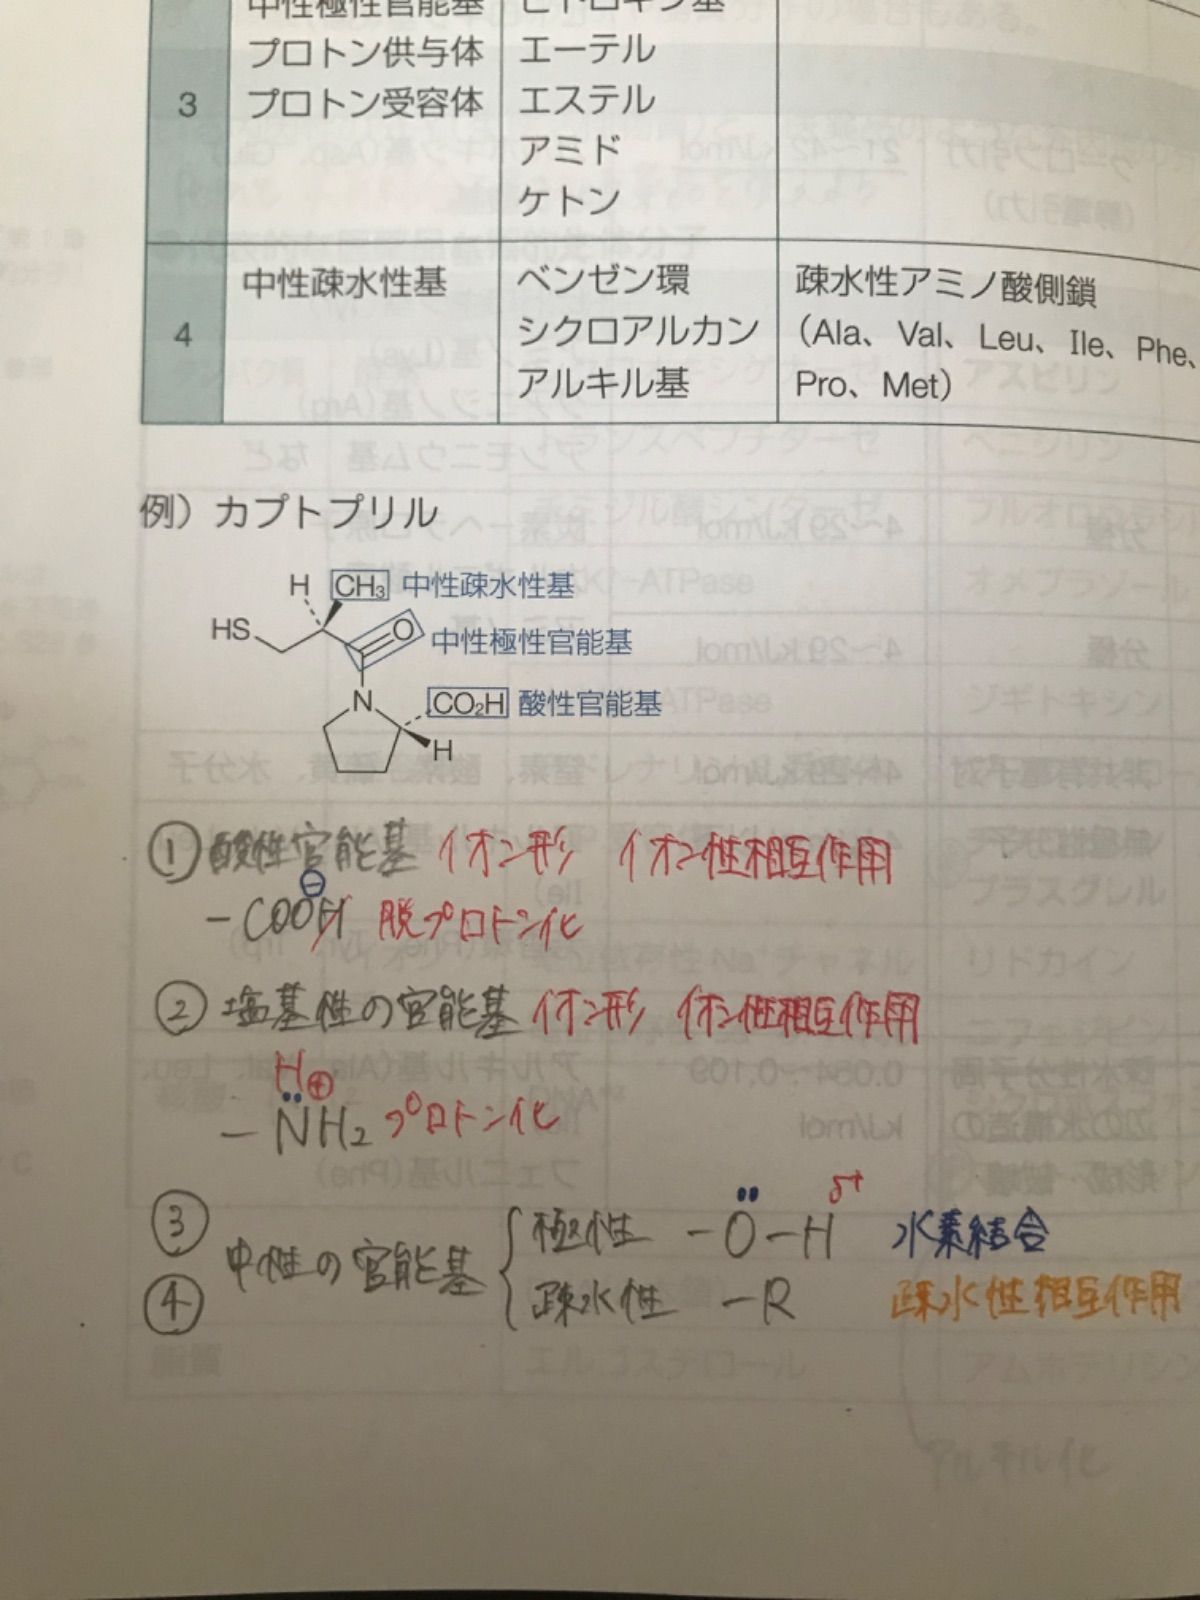 中性極性官能基 ヒドロキシ基
プロトン供与体 エーテル
3 プロトン受容体 エステル
アミド
ケトン
中性疎水性基 ベンゼン環 疎水性アミノ酸側鎖
4 シクロアルカン (Ala、Val、Leu、Ile、Phe、
アルキル基 Pro、Met)
例）カプトプリル
H CH₃ 中性疎水性基
HS O 中性極性官能基
N CO₂H 酸性官能基
H
① 酸性官能基 イオン形 イオン性相互作用
⊖
－COOH 脱プロトン化
② 塩基性の官能基 イオン形 イオン性相互作用
H⊕
－NH₂ プロトン化
③ 極性 －O－H δ+ 水素結合
中性の官能基
④ 疎水性 －R 疎水性相互作用